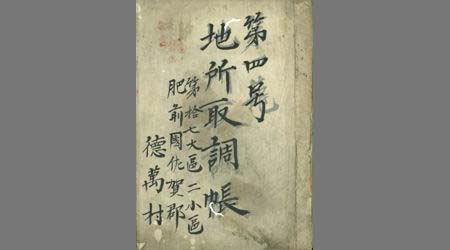 第四号
地所取調帳
第拾七大區二小區
肥前國佐賀郡
德萬村